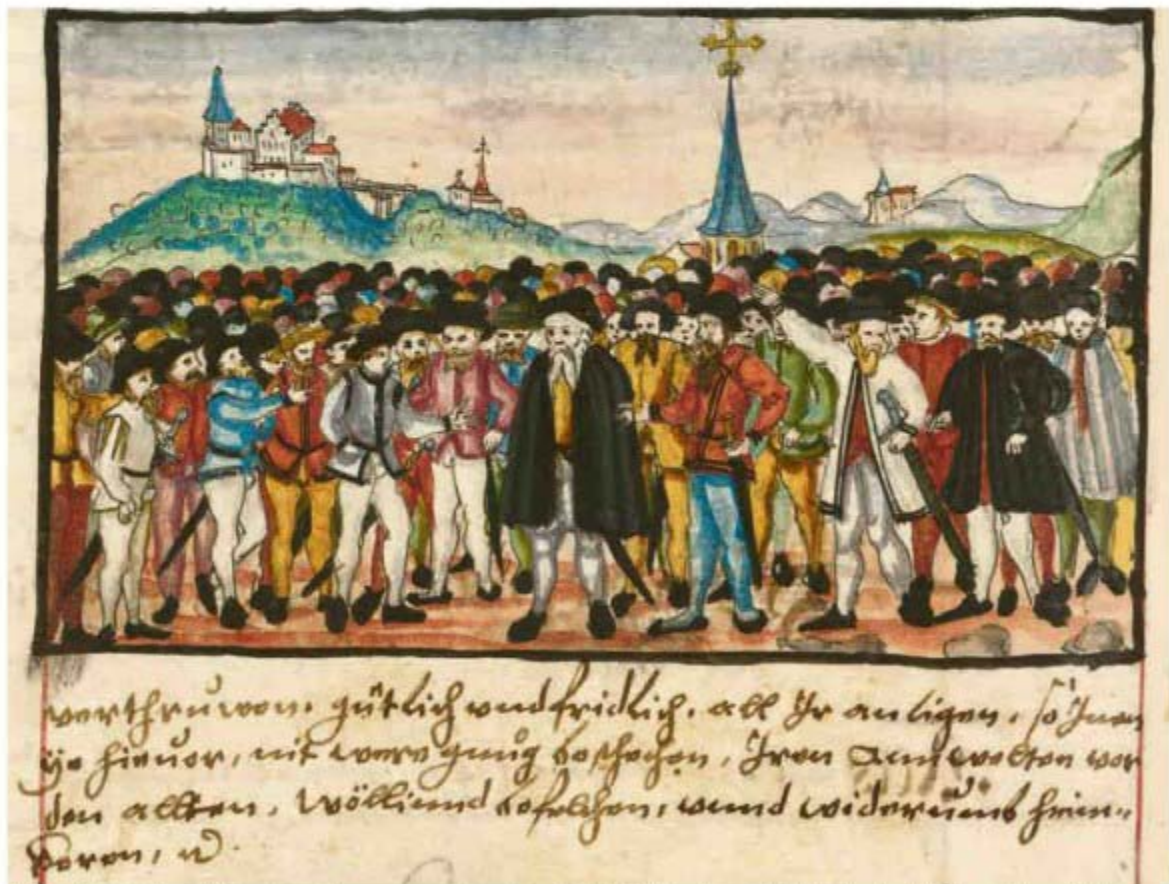 verthruwen. gütlich vnd fridlich. all Ir anligen. so Inen
ye hieuor, nit were gnuͦg beschechen, Iren Anwelten vor
den allten. wölliend befelchen, vnnd widerumb heim-
keren,